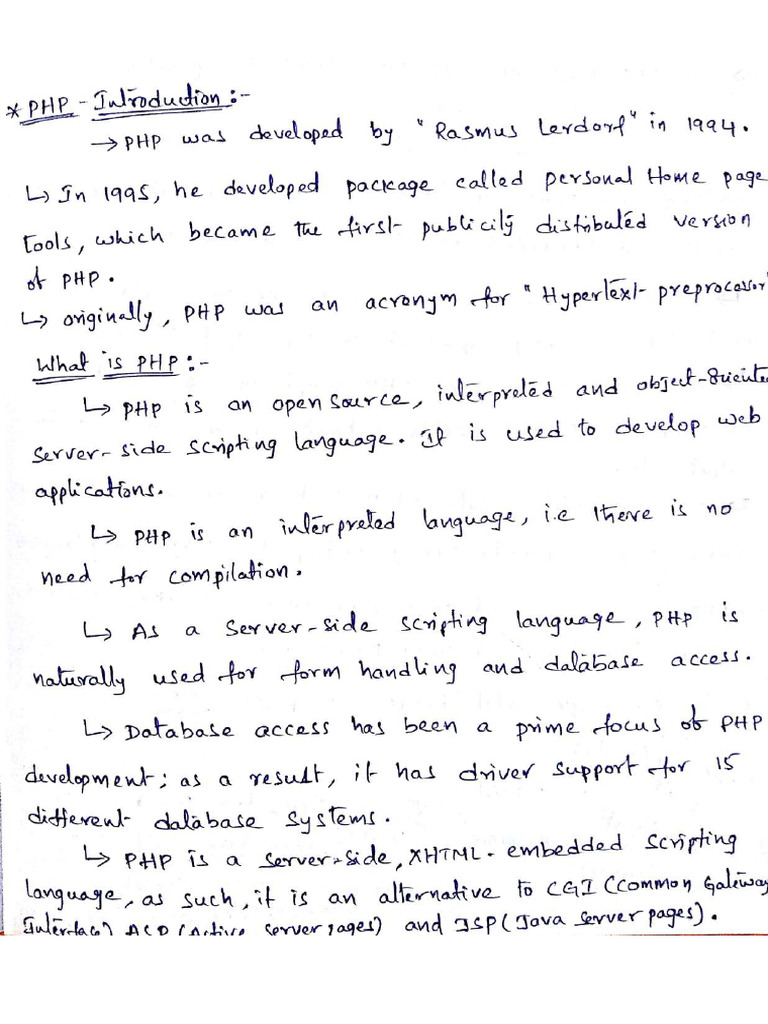 * PHP - Introduction :-
→ PHP was developed by "Rasmus Lerdorf" in 1994.
↳ In 1995, he developed package called personal Home page
tools, which became the first publicily distributed version
of PHP.
↳ originally, PHP was an acronym for "Hypertext preprocessor"
What is PHP :-
↳ PHP is an open source, interpreted and object-oriented
server-side scripting language. It is used to develop web
applications.
↳ PHP is an interpreted language, i.e there is no
need for compilation.
↳ As a server-side scripting language, PHP is
naturally used for form handling and database access.
↳ Database access has been a prime focus of PHP
development; as a result, it has driver support for 15
different database systems.
↳ PHP is a server-side, XHTML-embedded scripting
language, as such, it is an alternative to CGI (Common Gateway
Interface) ASP (Active server pages) and JSP (Java server pages).